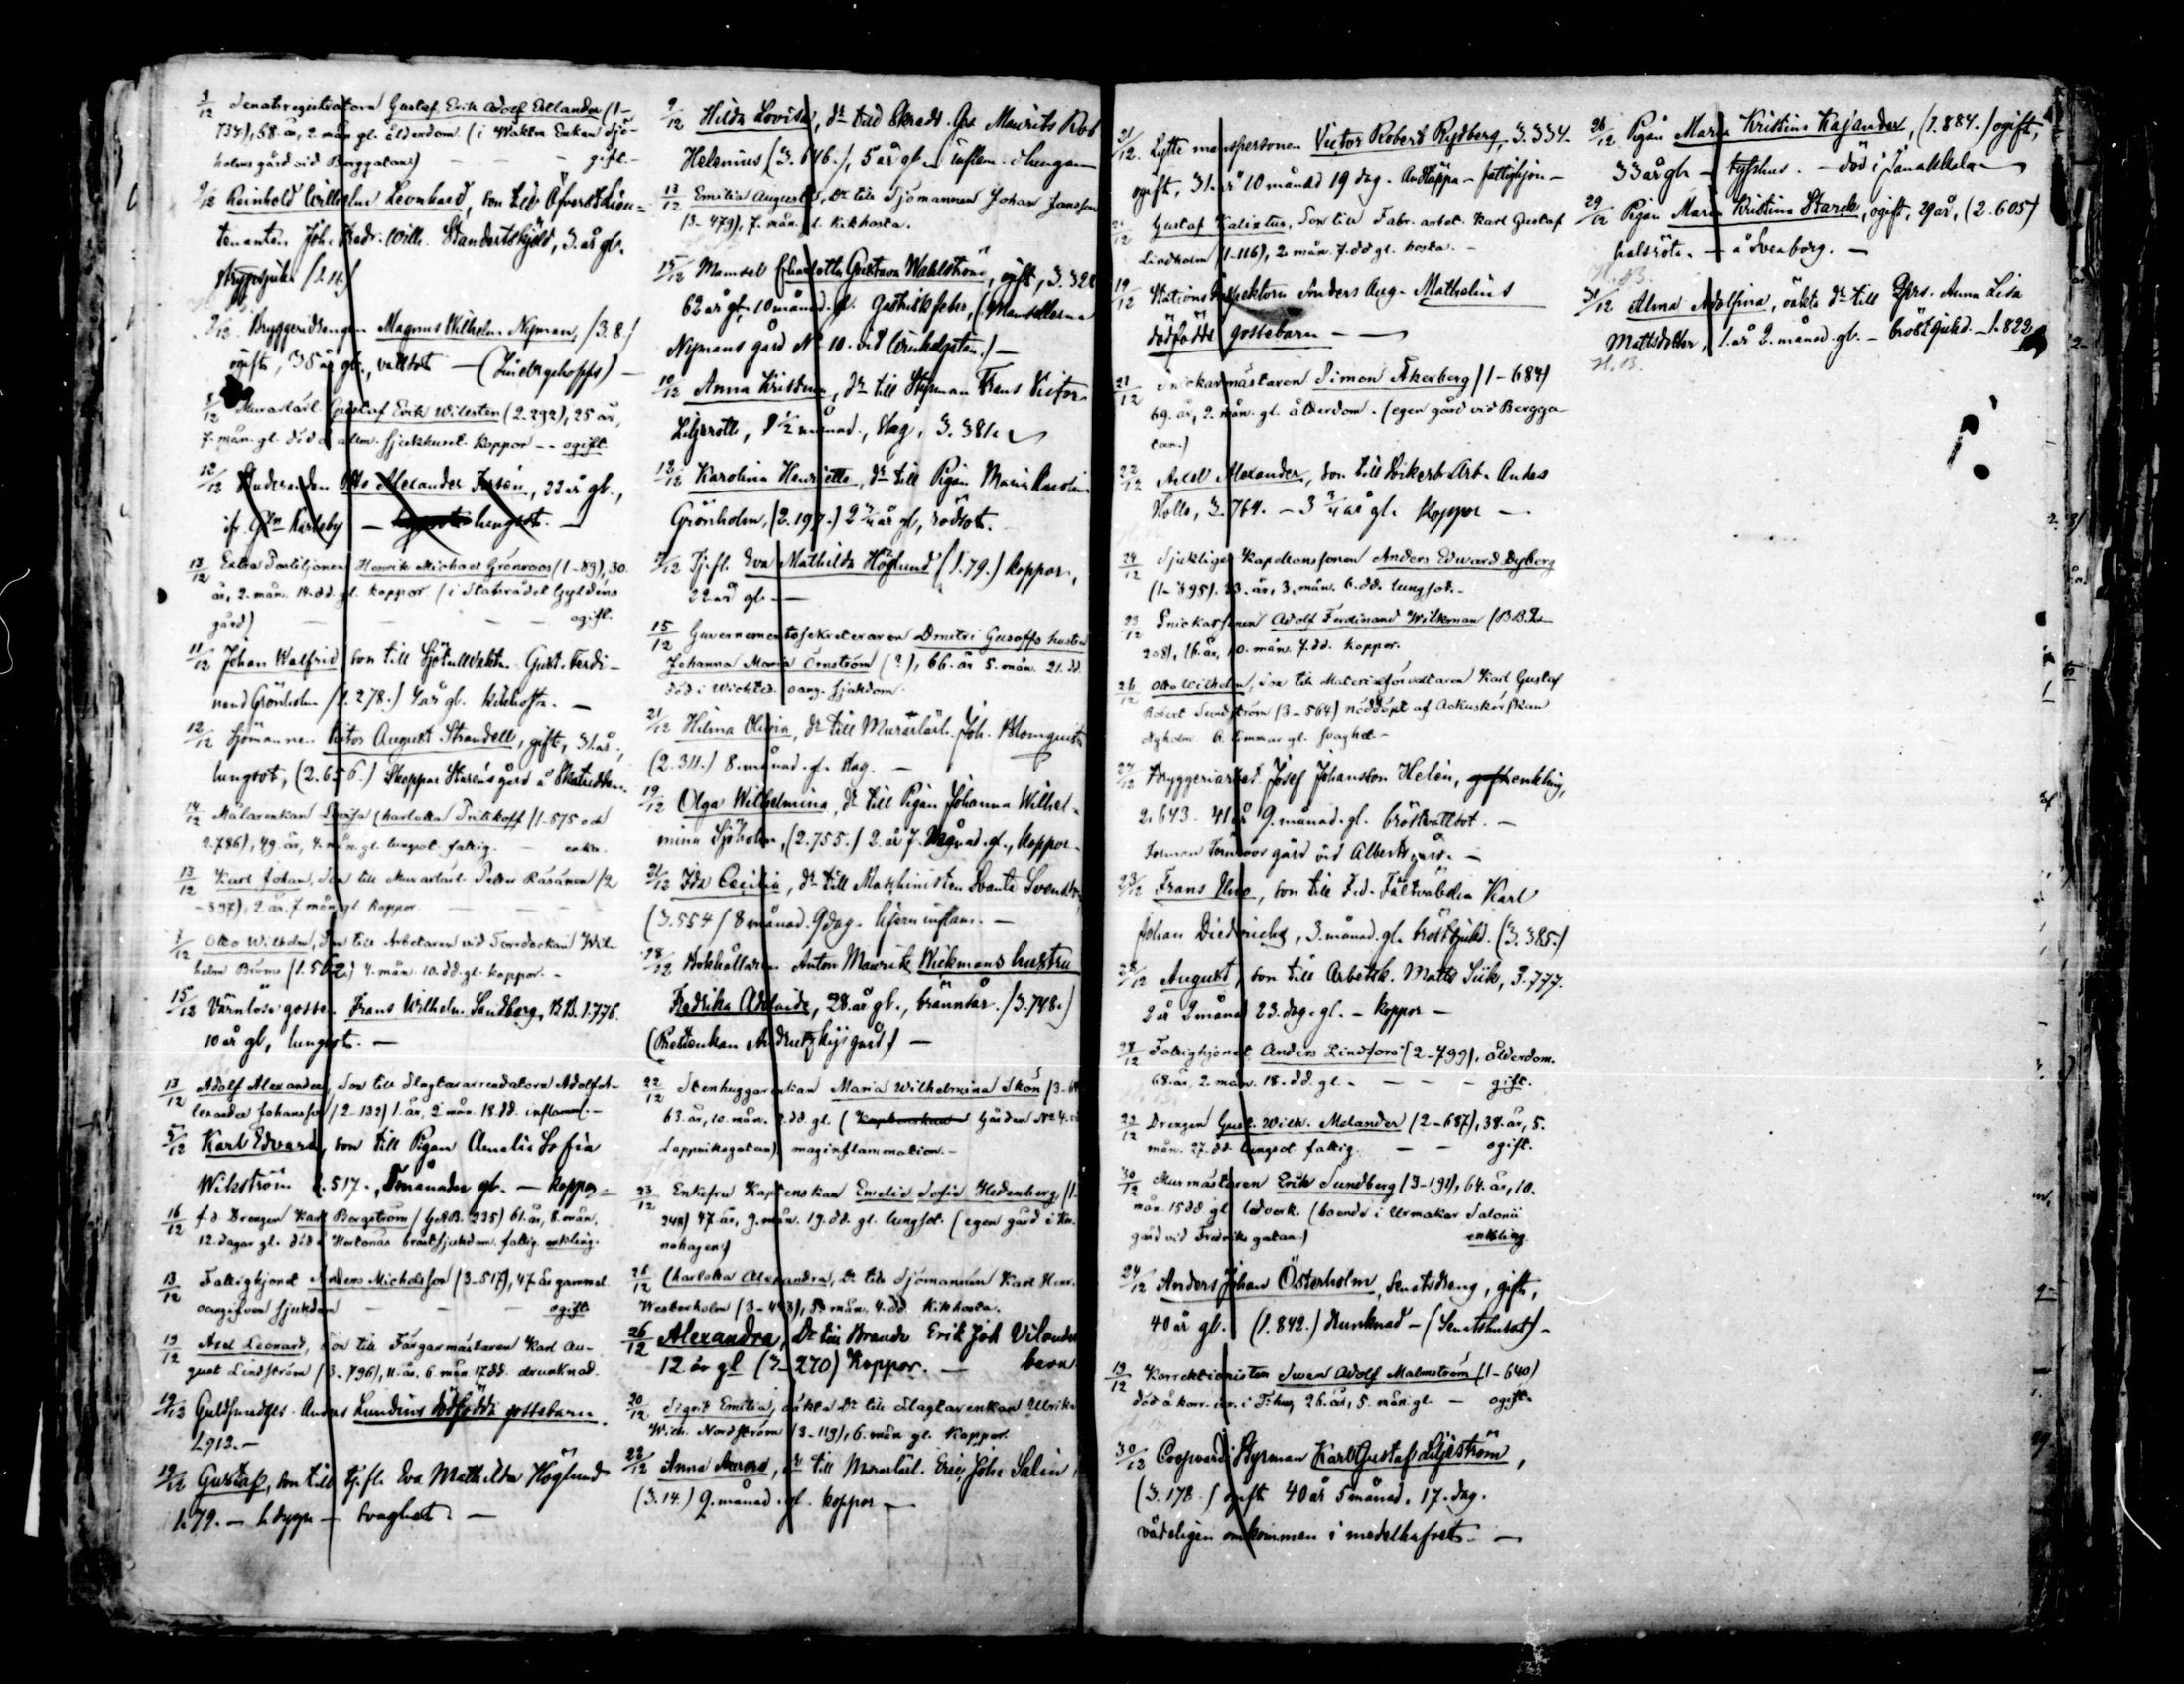 9/12 Senatsregistratorn Gustaf Erik Adolf (1-
737), 68. år, 2. mån gl. ålderdom. (i Enkan Sjö-
holms gård vid Berggatan) — — gift.
9/12 Reinhold Wilhelm Leonhard, son till Öfverstlieu-
tenanten Joh. Fredr. Wilh. Standertskjöld, 3. år gl.
strypsjuka
9/12. Bryggeridrengen Magnus Wilhelm Nyman, (3.8.)
ogift, 35 år gl., vattsot —
8/12 Murarlärl. Gustaf Erik Wilesten (2.292), 25 år,
7. mån. gl. död å allm. sjukhuset. Koppor -- ogift
12/12 Studeranden Otto Alexander, 22 år gl.,
ifr. Karleby — lungsot. —
13/12 Extra Postiljonen Henrik Michael Grönroos (1-89), 30.
år, 2. mån. 14. dd. gl. koppor (i Statsrådet Gyldéns
gård) — — — ogift.
11/12 Johan Walfrid son till Sjötullvaktm. Gust. Ferdi-
nand Grönholm (1.278.) 4 år gl. kikhosta. —
12/12 Sjömannen Victor August Strandell, gift, 31. år,
lungsot, (2.656.) Skeppar gård å Skatudden.
14/12 Målarenkan Lovisa Charlotta Pritikoff (1-575 och
2.786), 49. år, 4. mån. gl. lungsot. fattig. — enka.
13/12 Karl Johan, Son till Murarlärl. Petter Räsänen (2
-397), 2. år. 7. mån gl. Koppor. — —
8/12 Otto Wilhelm, Son till Arbetaren vid Torrdockan Wil-
helm Broms (1.562) 4. mån. 10. dd. gl. koppor. -
15/12 Värnlöse gossen Frans Wilhelm Sandberg, B.B. 1.776.
10 år gl, lungsot. —
13/12 Adolf Alexander, Son till Slagtararrendatorn Adolf A-
lexander Johansson (2-132) 1. år, 2 mån. 18. dd. inflamm. -
5/12 Karl Edvard, son till Pigan Amalia Sofia
Wikström 2.517., månader gl. — koppor
16/12 f.d. Drengen Karl Bergström (G.A.B. 235) 61. år, 8. mån.
12. dagar gl. död å Hertonäs bröstsjukdom. fattig. enkling.
13/12 Fattighjonet Anders Michelsson (3-517), 47 år gammal.
oangifven sjukdom — — — ogift
13/12 Axel Leonard, Son till Färgarmästaren Karl Au-
gust Lindström (3-796), 11. år, 6. mån. 17. dd. drunknad.
19/12 Guldsmedges. Anders Lundins dödfödda gossebarn.
1.912. —
19/12 Gustaf, son till tj.fl. Eva Mathilda Höglund
1.79. — 1. dygn — svaghet. —
9/12 Hilda Lovisa, dr till Skredd. Ges. Maurits Rob
Helenius (3.646.), 5 år gl. inflam. i lungan
13/12 Emilia Augusta, Dr till Sjömannen Johan Jansson
(3-479), 7. mån. gl. Kikhosta.
15/12 Mamsel Charlotta Gustava Wahlström, ogift, 3.328
62 år gl. 10 månad. gl. gastrisk feber, (Mamsellerna
Nymans gård No 10. vid Winkelgatan.) —
10/12 Anna Kristina, dr till Styrman Frans Victor
Liljeroth, 8 1/2 månad., slag, 3.381.
12/12 Karolina Henrietta, dr till Pigan Maria Karolina
Grönholm, (2.197.) 2 3/4 år gl, rödsot.
9/12 Tj.fl. Eva Mathilda Höglund (1.79.) koppor,
22 år gl. —
15/12 Guvernementssekreteraren Dmitri Gusoffs hustru
Johanna Maria Örnström (?), 66. år 5. mån. 21. dd.
död i Wichtis. oang. sjukdom.
21/12 Hilma Olivia, dr till Murarlärl. Joh. Blomquist
(2.311.) 8. månad. gl. slag. —
19/12 Olga Wilhelmina, dr till Pigan Johanna Wilhel-
mina Sjöholm, (2.755.) 2. år 7. Månad. gl., koppor.
21/12 Ida Cecilia, dr till Maschinisten Svante Svenström
(3.554) 8 månad. 9 dag. hjerninflam. —
18/12 Bokhållaren Anton Maurits Wickmans hustru
Fredrika Adelaide, 28. år gl., brännsår. (3.748.)
(Rådenkan Andrietzkijs gård) —
22/12 Stenhuggarenkan Maria Wilhelmina Skön (3-6
63. år, 10. mån. 2. dd. gl. (Gården No 4. vid
Lappviksgatan) maginflammation. -
23/12 Enkefru Kaptenskan Emelie Sofie Hedenberg (1-
248) 47. år, 9. mån. 19. dd. gl. lungsot. (egen gård i Kro-
nohagen)
26/12 Charlotta Alexandra, Dr till Sjömannen Karl Henr.
Westerholm (3-493), 3 mån. 4. dd. Kikhosta.
26/12 Alexandra, Dr till Brandv. Erik Joh Vilander
12 år gl (3-270) Koppor. — barn
20/12 Sigrid Emilia, oäkta Dr till Slagtarenkan Ulrika
Wilh. Nordström (3-113), 6. mån gl. Koppor.
22/12 Anna Aurora, dr till Murarlärl. Eric Joh. Salin
(3.14.) 9. månad. gl. koppor —
21/12. Lytte manspersonen Victor Robert Rydberg, 3.334.
ogift, 31. år 10 månad 19 dag. Andtäppa - fattighjon -
21/12 Gustaf Kalixtus, Son till Fabr. arbet. Karl Gustaf
Lindholm (1-116), 2 mån. 7. dd gl. hosta. -
19/12 Stations Inspektorn Anders Aug. Mathelins
dödfödde gossebarn — —
21/12 Snickarmästaren Simon Åkerberg (1-684)
69. år, 2. mån. gl. ålderdom. (egen gård vid Bergga-
tan.)
22/12 Axel Alexander, son till Sockerb. Arb. Anders
Hollo, 3.764. - 3 3/4 år gl. Koppor —
24/12 Sjuklige Kapellanssonen Anders Edward Dyberg
(1-895). 23. år, 3. mån. 6. dd. lungsot. -
23/12 Snickarsonen Adolf Ferdinand Wilkman (B.B.2
208), 16. år, 10. mån. 7. dd. koppor.
26/12 Otto Wilhelm, Son till Materialförvaltaren Karl Gustaf
Robert Sundström (3-564) nöddöpt af Ackuschörskan
Nyholm 6. timmar gl. svaghet. -
27/12 Bryggeriarbet. Josef Johansson Helén, gift enkling,
2.643. 41 år 9. månad. gl. bröstvattsot. —
Forman Törnroos gård vid Albertsgat. —
23/12 Frans Uno, son till F.d. Fältväbeln Karl
Johan Diedrichs, 3. månad. gl. bröstsjukd. (3.385.)
28/12 August, son till Arbetsk. Matts Siik, 3.777.
2 år 2 månad 23. dag. gl. - koppor -
28/12 Fattighjonet Anders Lindfors (2-799), ålderdom.
68. år, 2. mån. 18. dd. gl. - — — gift.
22/12 Drengen Gust. Wilh. Melander (2-687), 38. år, 5.
mån. 27. dd. lungsot fattig. — — ogift.
30/12 Murmästaren Erik Sundberg (3-191), 64. år, 10.
mån. 15 dd gl ledverk. (boende i Urmakar Salonii
gård vid Fredriks gatan) enkling.
24/12 Anders Johan Österholm, Senatsdreng, gift,
40 år gl. (1.842.) drunknad - (Senatshuset) -
19/12 Korrektionisten Swen Adolf Malmström (1-640)
död å korr. inr. i T:hus, 26. år, 5. mån. gl. — ogift.
30/12 Coopvardi Styrman Karl Gustaf Liljeström,
(3.178.) ogift 40 år 5 månad. 17. dag.
vådeligen omkommen i medelhafvet. —
26/12 Pigan Maria Kristina Kajander, (1.884.) ogift,
33 år gl. - tyfshus. - död i Janakkala
29/12 Pigan Maria Kristina Starck, ogift, 29 år, (2.605)
halsröta. - å Sveaborg. —
H.B.
31/12 Alma Adolfina, oäkta dr till Pigan Anna Lisa
Mattsdotter, 1. år 2. månad. gl. - bröstsjukd. - 1.822
H.B.